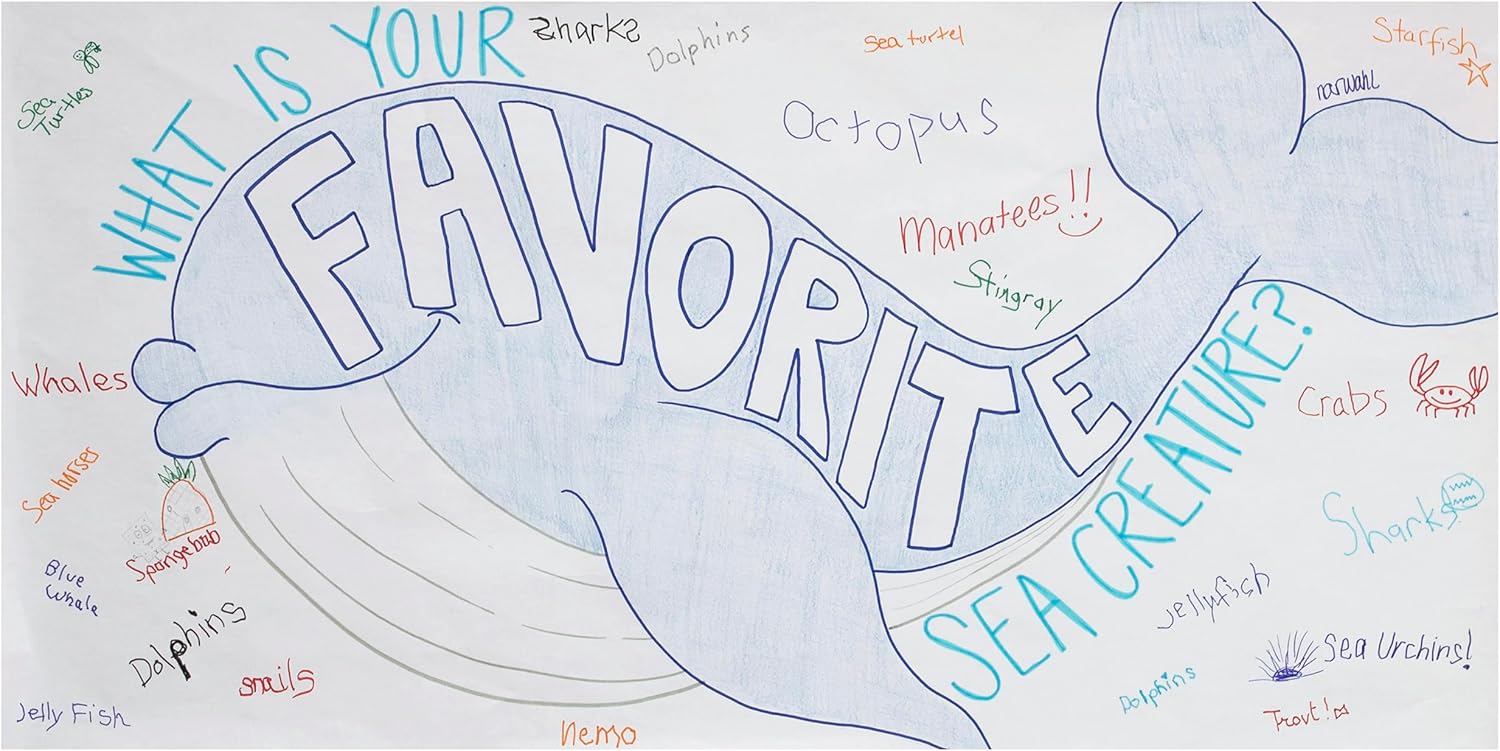 WHAT IS YOUR
FAVORITE
SEA CREATURE?
Sharks
Dolphins
Sea turtel
Starfish
narwahl
Sea
Turtles
Octopus
Manatees!!
Stingray
Whales
Crabs
Sea horses
Sharks
Spongebob
Blue
Whale
Jellyfish
Dolphins
Sea Urchins!
snails
Dolphins
Jelly Fish
Trout!
Nemo